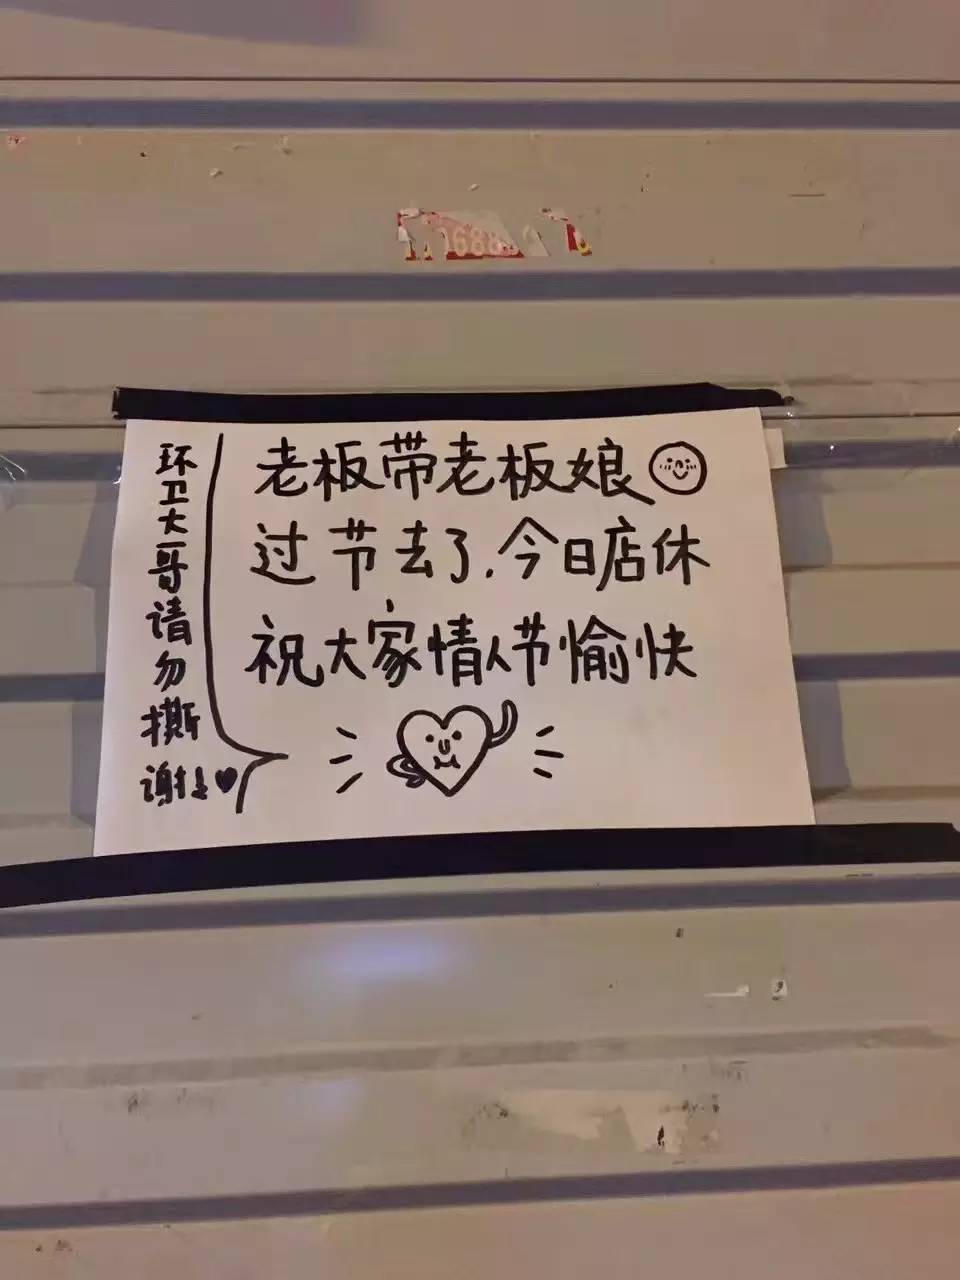 1688
老板带老板娘
过节去了.今日店休
祝大家情人节愉快
环卫大哥请勿撕
谢谢